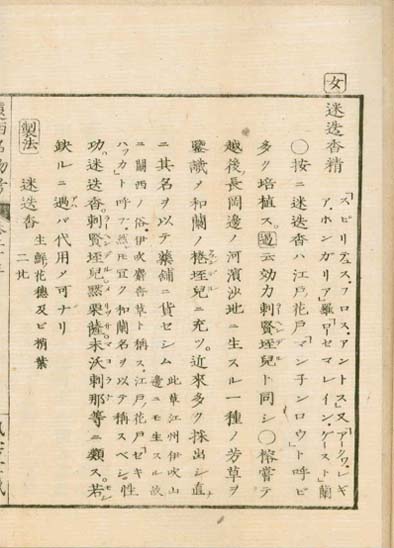 女
迷迭香精
「スピリテュス、フロス、アントス」又「アークワ、レギ
ア、ホンガリア」羅「ローセマレイン、ゲースト」蘭
○按ニ迷迭香ハ江戸ノ花戸「マン子ンロウ」ト呼ビ
多ク培植ス。云効力剌賢垤兒ト同シ○榕嘗テ
越後ノ長岡邊ノ河濱沙地ニ生スル一種ノ芳草ヲ
鑒識〆和蘭ノ垤兒ニ充ツ。近來多ク採出シ直
ニ其名ヲ以テ藥舗ニ貨セシム
此草江州伊吹山
邊ニモ生スル故
ニ關西ノ俗伊吹麝香草ト稱ス。江戸ノ花戸「ゼキ
ハッカ」ト呼ブ。然ド宜ク和蘭名ヲ以テ稱スベシ。性
功、迷迭香。剌賢垤兒。默栗薩。末沃剌那等ニ類ス。若
缺ルニ遇バ代用〆可ナリ
製法
迷迭香
生鮮ノ花穗及ビ梢葉
二